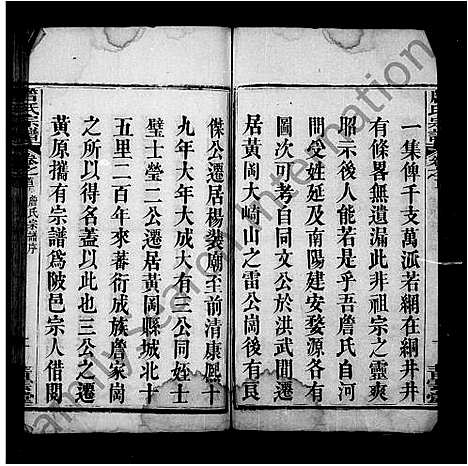 一集俾千支萬派若網在綱井井
有條畧無遺漏此非祖宗之靈爽
昭示後人能若是乎吾詹氏自河
間受姓延及南陽建安婺源各有
圖次可考自同文公於洪武間遷
居黃岡大崎山之雷公崗後有良
傑公遷居楊裴廟至前清康熙十
九年大年大成大有三公同姪士
璧士榮二公遷居黃岡縣城北十
五里二百年來蕃衍成族詹家崗
之所以得名蓋以此也三公之遷
黃原攜有宗譜為陂邑宗人借閱
詹氏宗譜
卷之首
詹氏宗譜序
FamilySearch International